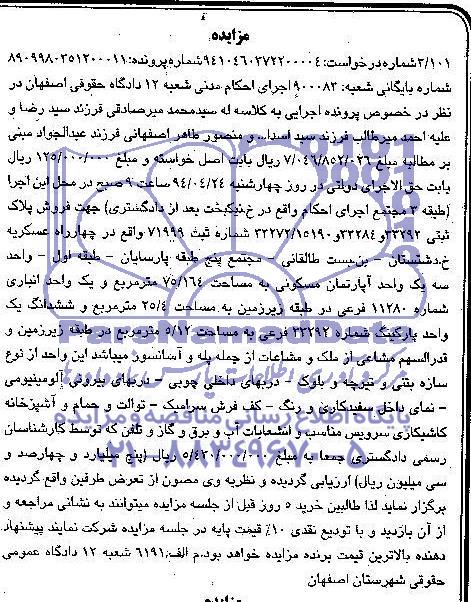 مزایده
۳/۱۰۱ شماره درخواست: ۹۴۱۰۴۶۰۳۷۲۲۰۰۰۰۴ شماره پرونده: ۸۹۰۹۹۸۰۳۵۱۲۰۰۰۱۱
شماره بایگانی شعبه: ۹۰۰۰۸۳ اجرای احکام مدنی شعبه ۱۲ دادگاه حقوقی اصفهان در
نظر در خصوص پرونده اجرایی به کلاسه له سیدمحمد میرصادقی فرزند سید رضا و
علیه احمد میرطالب فرزند سید اسدا... و منصور طاهر اصفهانی فرزند عبدالجواد مبنی
بر مطالبه مبلغ ۷/۰۴۶/۸۵۲/۰۲۶ ریال بابت اصل خواسته و مبلغ ۱۲۵/۰۰۰/۰۰۰ ریال
بابت حق الاجرای دولتی در روز چهارشنبه ۹۴/۰۴/۲۴ ساعت ۹ صبح در محل این اجرا
(طبقه ۳ مجتمع اجرای احکام واقع در خ.نیکبخت بعد از دادگستری) جهت فروش پلاک
ثبتی ۳۳۲۹۲و۳۳۲۸۴و۳۳۲۷۲/۱۵۱۹۰ شماره ثبت ۷۱۹۹۹ واقع در چهارراه عسکریه
خ.دشتستان – بن‌بست طالقانی – مجتمع پنج طبقه پارسایان – طبقه اول – واحد
سه یک واحد آپارتمان مسکونی به مساحت ۷۵/۱۶۴ مترمربع و یک واحد انباری
شماره ۱۱۲۸۰ فرعی در طبقه زیرزمین به مساحت ۲۵/۴ مترمربع و ششدانگ یک
واحد پارکینگ شماره ۳۳۲۹۲ فرعی به مساحت ۵/۱۲ مترمربع در طبقه زیرزمین و
قدرالسهم مشاعی از ملک و مشاعات از جمله پله و آسانسور میباشد این واحد از نوع
سازه بتنی و تیرچه و بلوک – دربهای داخلی چوبی – دربهای بیرونی آلومینیومی
– نمای داخل سفیدکاری و رنگ – کف فرش سرامیک – توالت و حمام و آشپزخانه
کاشیکاری سرویس مناسب و انشعابات آب و برق و گاز و تلفن که توسط کارشناسان
رسمی دادگستری جمعا به مبلغ ۵/۴۳۰/۰۰۰/۰۰۰ ریال (پنج میلیارد و چهارصد و
سی میلیون ریال) ارزیابی گردیده و نظریه وی مصون از تعرض طرفین واقع گردیده
برگزار نماید لذا طالبین خرید ۵ روز قبل از جلسه مزایده میتوانند به نشانی مراجعه و
از آن بازدید و با تودیع نقدی ۱۰٪ قیمت پایه در جلسه مزایده شرکت نمایند پیشنهاد
دهنده بالاترین قیمت برنده مزایده خواهد بود.م الف.۶۱۹۱ شعبه ۱۲ دادگاه عمومی
حقوقی شهرستان اصفهان
پایگاه اطلاع رسانی مناقصه و مزایده
۰۲۱-۸۸۳۴۹۶۷۰-۵